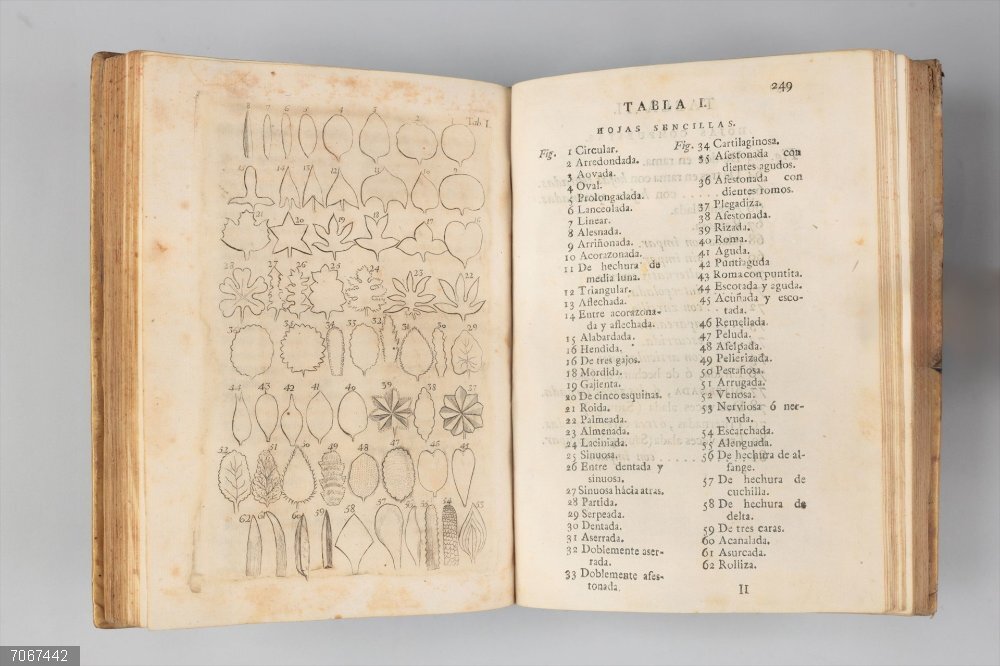 Tab. I.
8 7 6 5 4 3 2 1
15 14 13 12 11 10 9
21 20 19 18 17 16
28 27 26 25 24 23 22
36 35 34 33 32 31 30 29
44 43 42 41 40 39 38 37
52 51 50 49 48 47 46 45
62 61 60 59 58 57 55 54 53
249
TABLA I.
HOJAS SENCILLAS.
Fig. 1 Circular.
2 Arredondada.
3 Aovada.
4 Oval.
5 Prolongadada.
6 Lanceolada.
7 Linear.
8 Alesnada.
9 Arriñonada.
10 Acorazonada.
11 De hechura de
media luna.
12 Triangular.
13 Aflechada.
14 Entre acorazona-
da y aflechada.
15 Alabardada.
16 Hendida.
16 De tres gajos.
18 Mordida.
19 Gajienta.
20 De cinco esquinas.
21 Roida.
22 Palmeada.
23 Almenada.
24 Laciniada.
25 Sinuosa.
26 Entre dentada y
sinuosa.
27 Sinuosa hácia atras.
28 Partida.
29 Serpeada.
30 Dentada.
31 Aserrada.
32 Doblemente aser-
rada.
33 Doblemente afes-
tonada.
Fig. 34 Cartilaginosa.
35 Afestonada con
dientes agudos.
36 Afestonada con
dientes romos.
37 Plegadiza.
38 Afestonada.
39 Rizada.
40 Roma.
41 Aguda.
42 Puntiaguda
43 Roma con puntita.
44 Escotada y aguda.
45 Acuñada y esco-
tada.
46 Remellada.
47 Peluda.
48 Afelpada.
49 Pelierizada.
50 Pestañosa.
51 Arrugada.
52 Venosa.
53 Nerviosa ó ner-
vuda.
54 Escarchada.
55 Alenguada.
56 De hechura de al-
fange.
57 De hechura de
cuchilla.
58 De hechura de
delta.
59 De tres caras.
60 Acanalada.
61 Asurcada.
62 Rolliza.
II
7067442